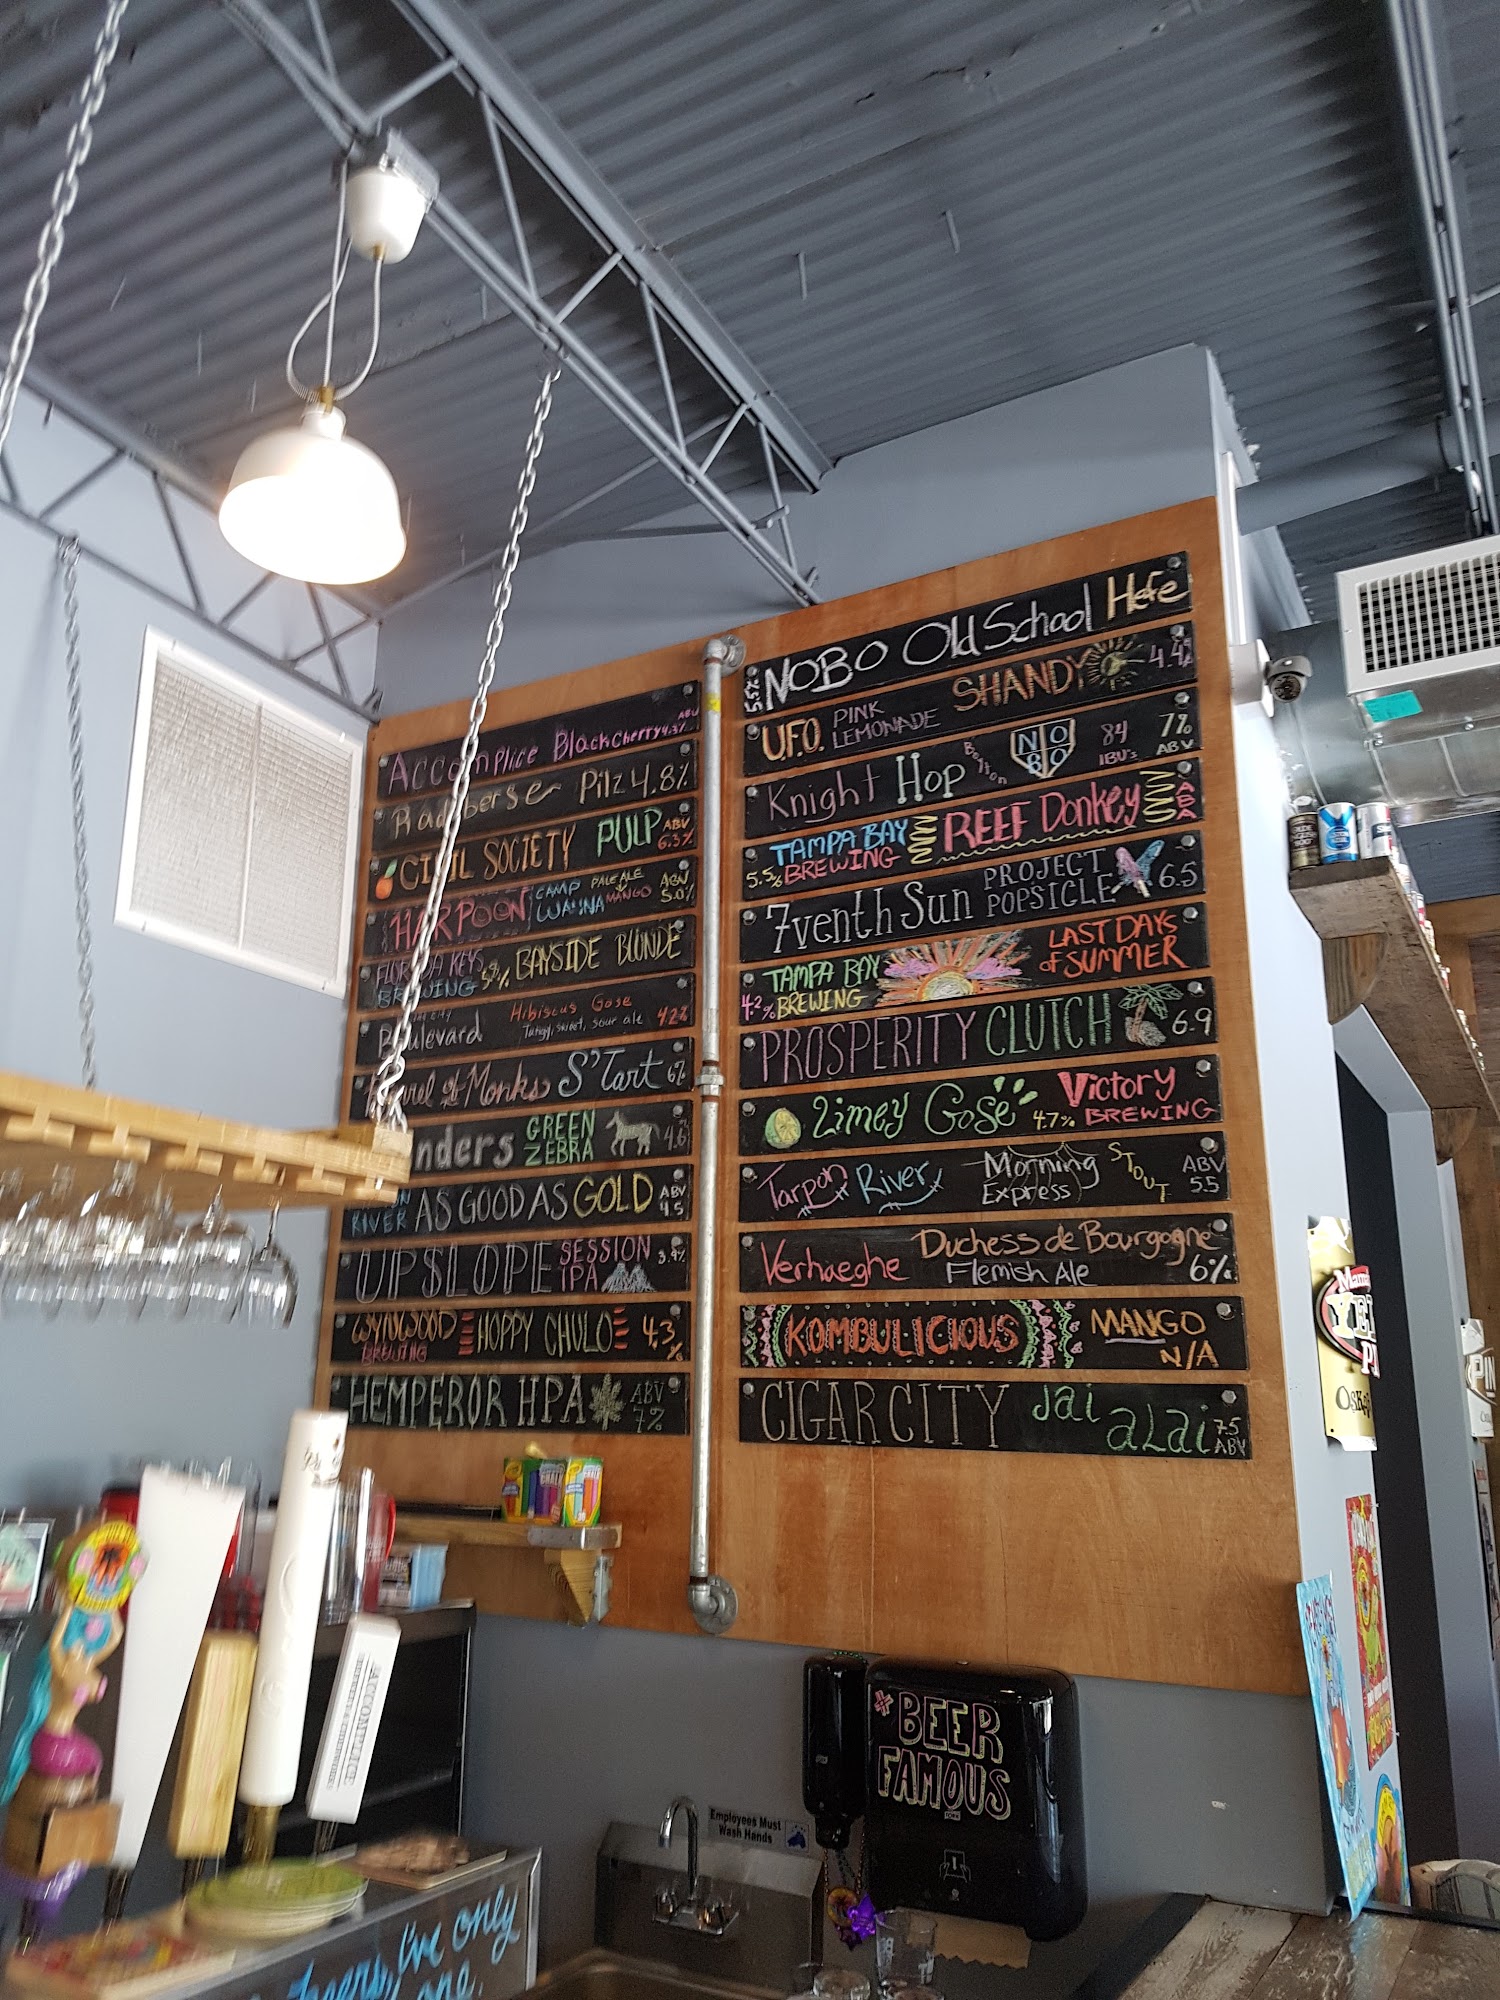 Accomplice Black Cherry 4.3% ABV
Radeberger Pilz 4.8%
CIVIL SOCIETY PULP ABV 6.3%
HARPOON CAMP WANNA MANGO PALE ALE ABV 5.0%
FLORIDA KEYS BREWING 5% BAYSIDE BLONDE
Boulevard Hibiscus Gose
Tangy, sweet, sour ale 4.2%
of Monks S'Tart 6%
GREEN ZEBRA 4.6%
RIVER AS GOOD AS GOLD ABV 4.5
UPSLOPE SESSION IPA
WYNWOOD BREWING HOPPY CHULO 4.3%
HEMPEROR HPA ABV 7%
5.5% NOBO Old School Hefe
U.F.O. PINK LEMONADE SHANDY 4.4%
Knight Hop Boston NOBO 84 IBU's 7% ABV
5.5% TAMPA BAY BREWING REEF Donkey
7venth Sun PROJECT POPSICLE 6.5
4.2% TAMPA BAY BREWING LAST DAYS of SUMMER
PROSPERITY CLUTCH 6.9
Limey Gose 4.7% Victory BREWING
Tarpon River Morning Express STOUT ABV 5.5
Verhaeghe Duchess de Bourgogne
Flemish Ale 6%
KOMBULICIOUS MANGO N/A
CIGAR CITY Jai aLai 7.5 ABV
#BEER
FAMOUS
Employees Must
Wash Hands
ACCOMPLICE
I've only
one.